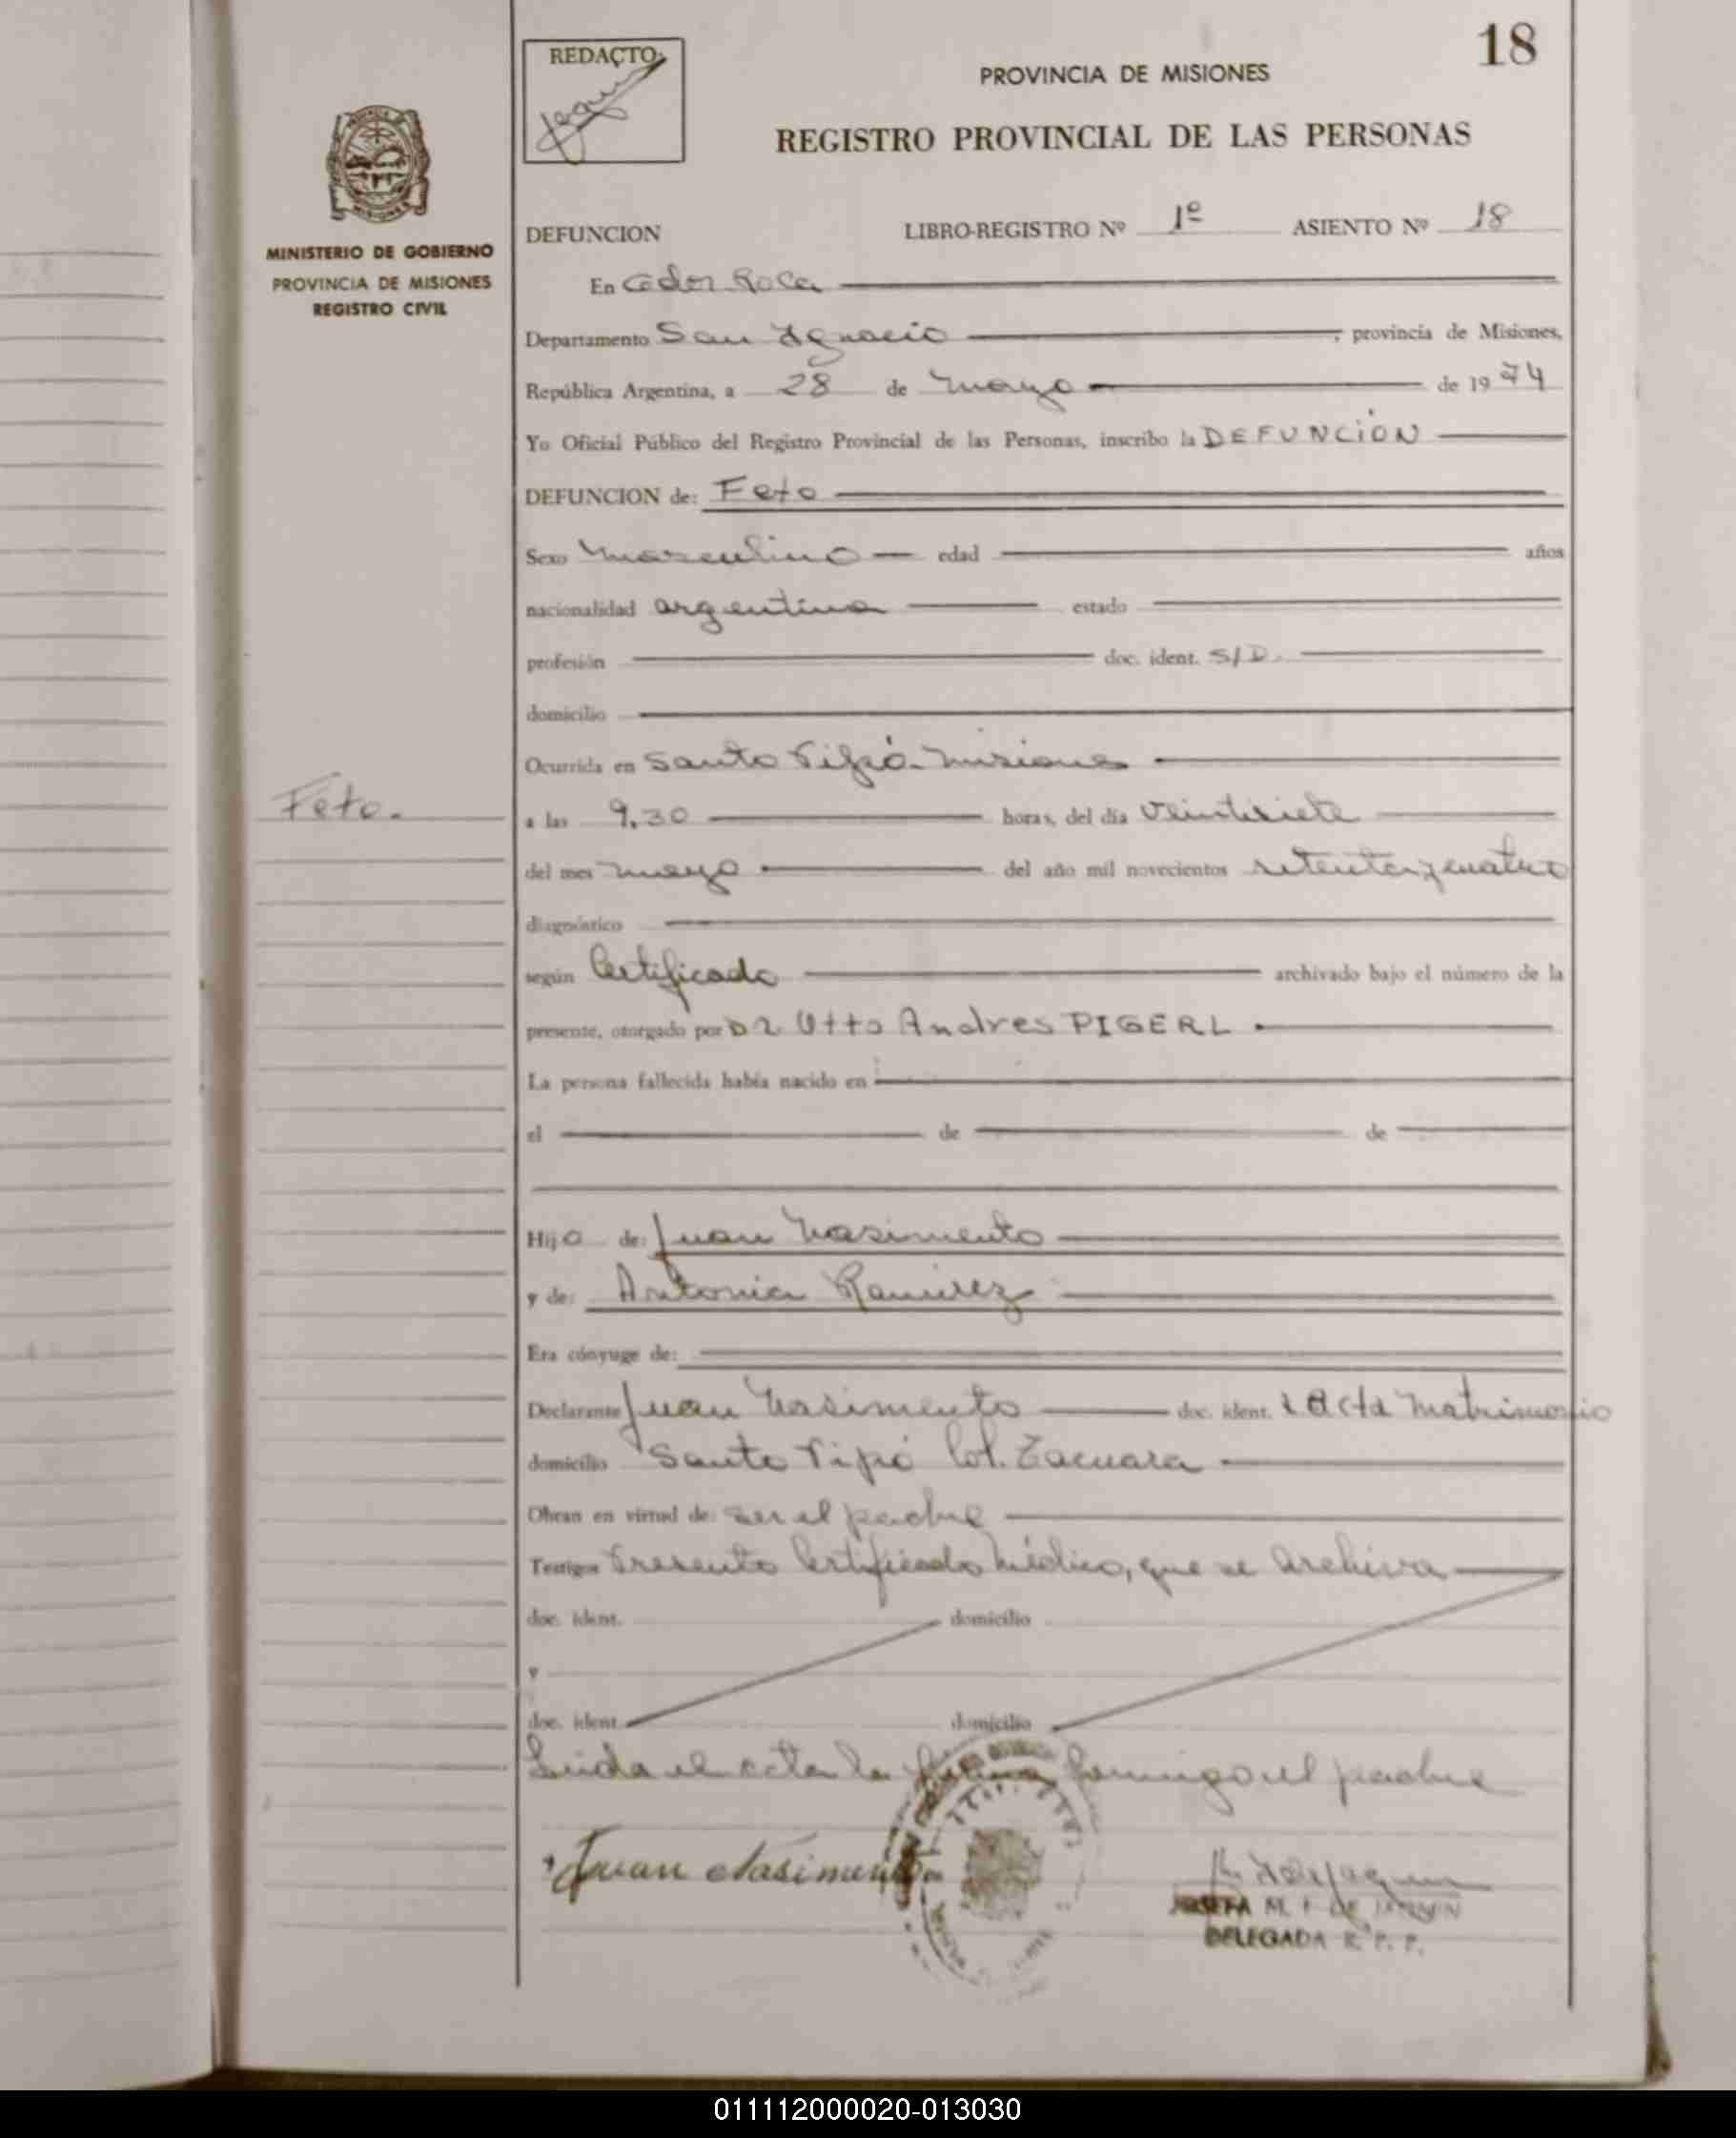 18
REDACTO
PROVINCIA DE MISIONES
REGISTRO PROVINCIAL DE LAS PERSONAS
MINISTERIO DE GOBIERNO
PROVINCIA DE MISIONES
REGISTRO CIVIL
DEFUNCION LIBRO-REGISTRO Nº 1º ASIENTO Nº 18
En Gdor Roca
Departamento San Ignacio ; provincia de Misiones,
República Argentina, a 28 de mayo de 1974
Yo Oficial Público del Registro Provincial de las Personas, inscribo la DEFUNCIÓN
DEFUNCION de: Feto
Sexo masculino edad años
nacionalidad argentina estado
profesión doc. ident. S/D.
domicilio
Ocurrida en Santo Pipó - misiones
Feto.
a las 9.30 horas, del día veintisiete
del mes mayo del año mil novecientos setenta y cuatro
diagnóstico
según Certificado archivado bajo el número de la
presente, otorgado por Dr Otto Andres PIGERL
La persona fallecida había nacido en
el de de
Hijo de: Juan Nasimento
y de: Antonia Ramirez
Era cónyuge de:
Declarante Juan Nasimento doc. ident. Acta Matrimonio
domicilio Santo Pipó Col. Tacuara
Obran en virtud de: ser el padre
Testigos Presento Certificado Médico, que se archiva
doc. ident. domicilio
y
doc. ident. domicilio
Leida el acta la firma conmigo el padre
Juan Nasimento
DE
DELEGADA R. P. P.
011112000020-013030